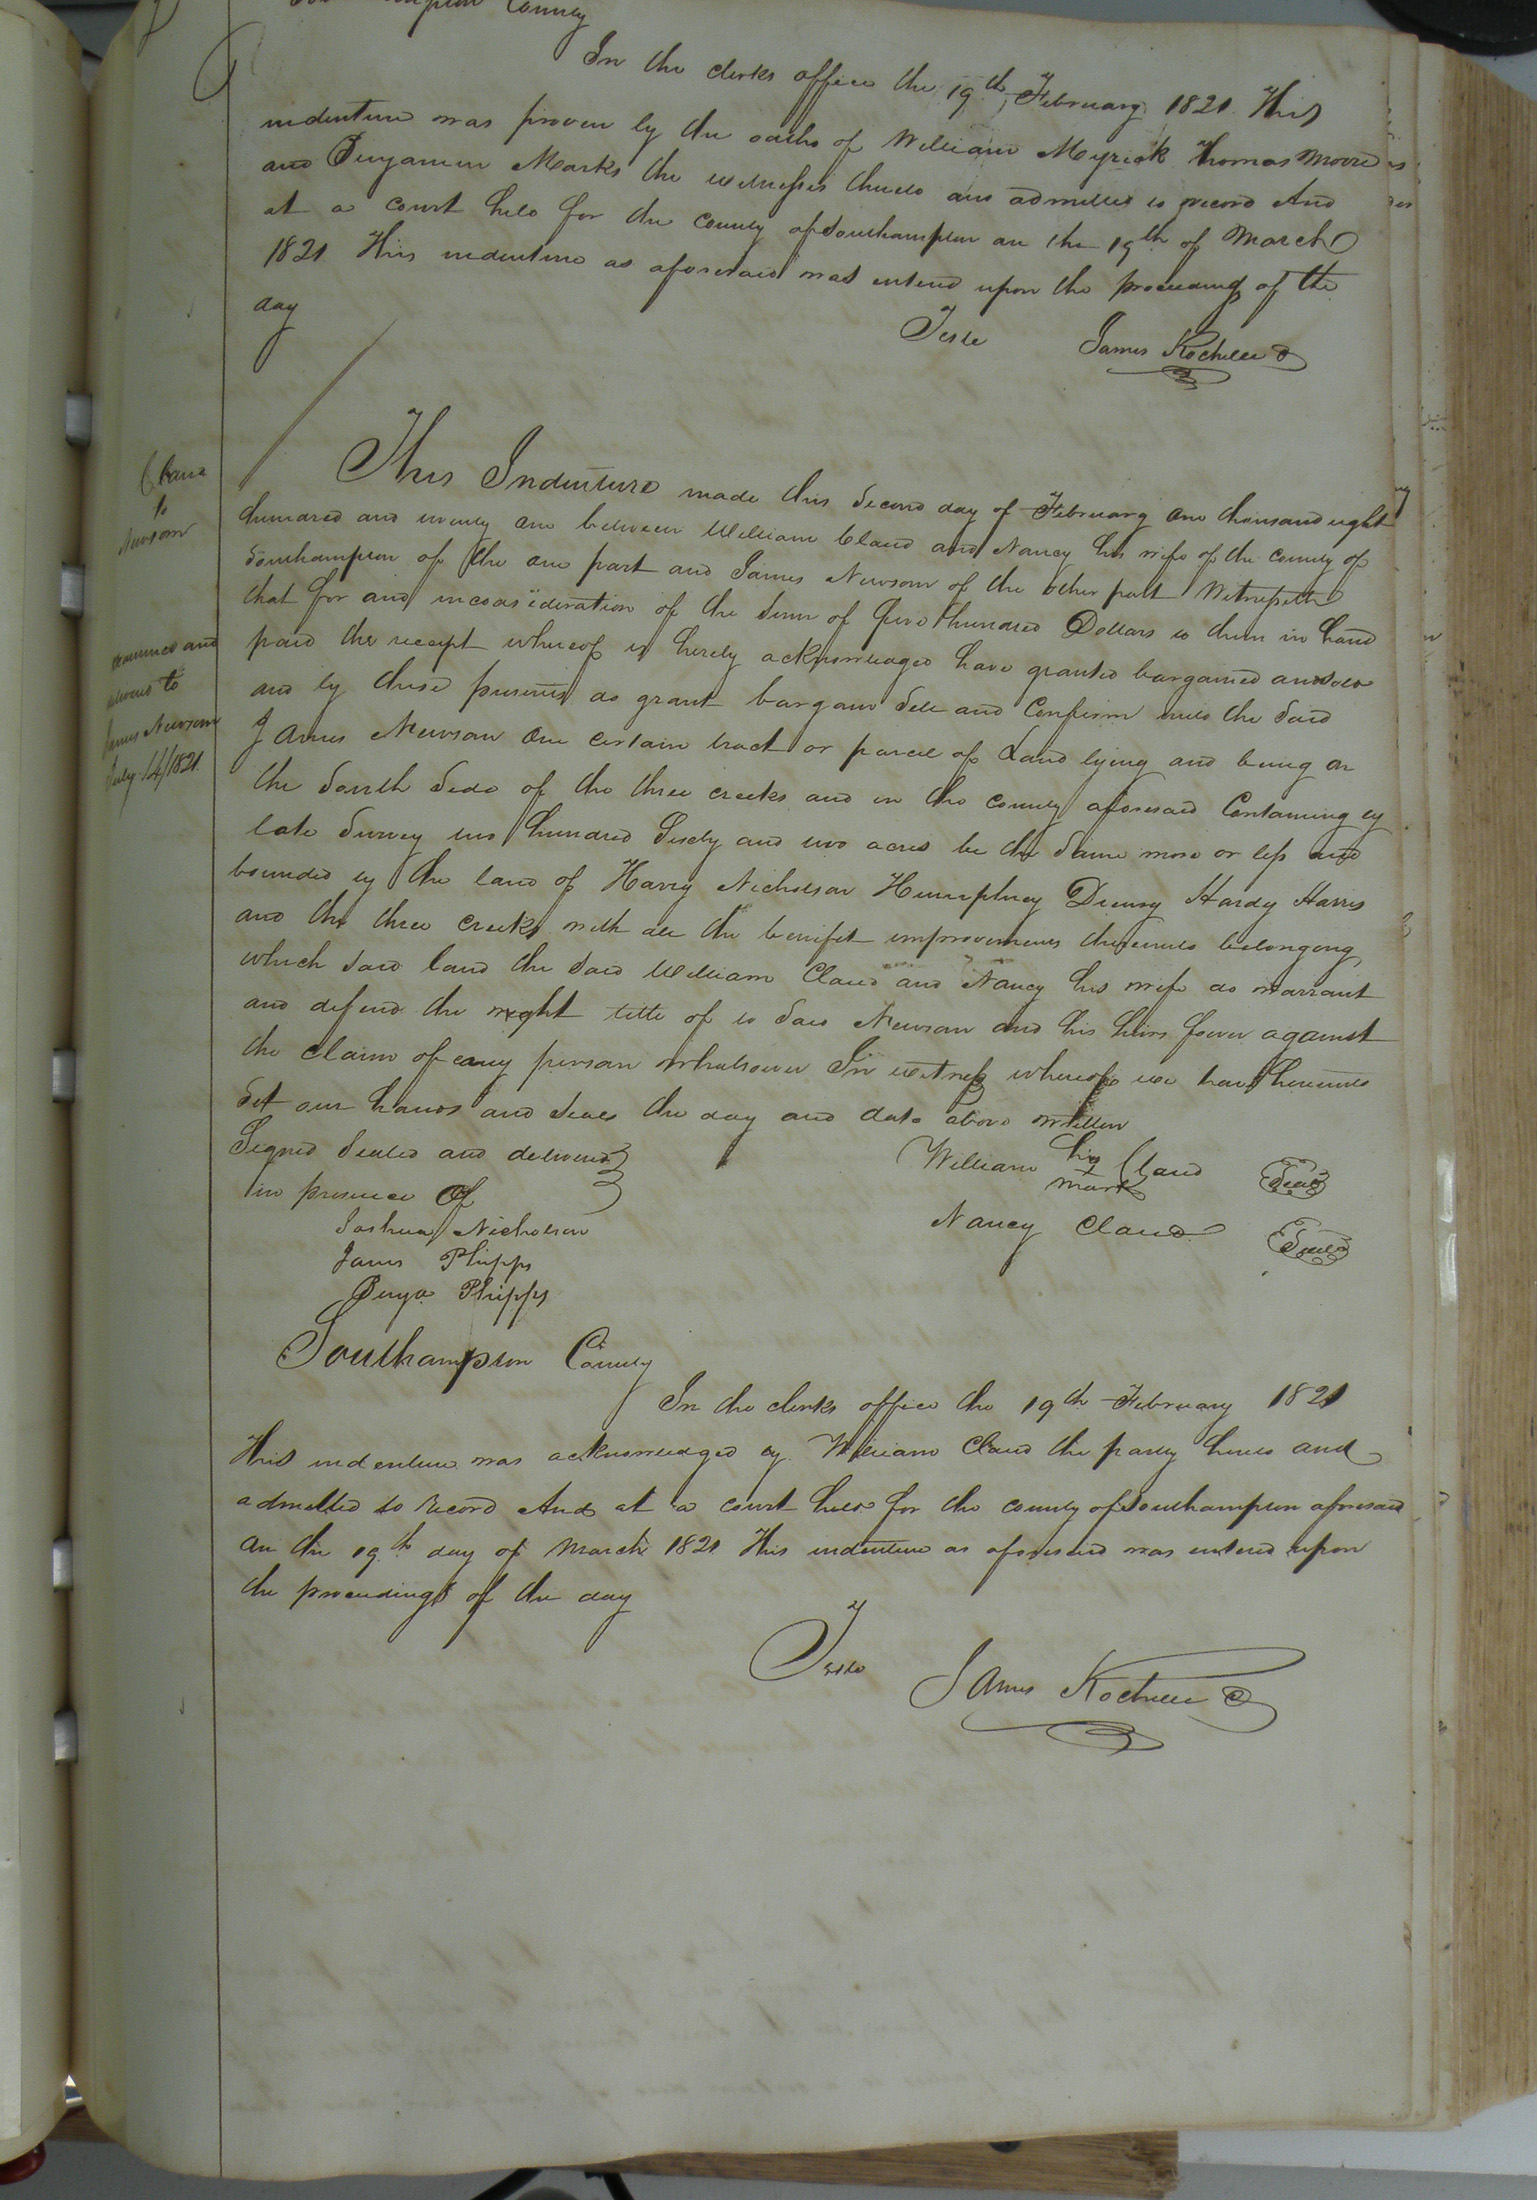 Southampton County
In the clerks office the 19th February 1821 This
indenture was proven by the oaths of William Myrick Thomas Moore
and Benjamin Marks the witnesses thereto and admitted to record And
at a court held for the county of Southampton on the 19th of March
1821 This indenture as aforesaid was enterd upon the proceedings of the
day
Teste James Rochelle C
Claud
to
Newsom
examined and
delivered to
James Newsom
July 14/1821
This Indenture made this Second day of February One thousand eight
hundred and twenty one between William Claud and Nancy his wife of the county of
Southampton of the one part and James Newsom of the other part Witnesseth
that for and in consideration of the sum of five hundred Dollars to them in hand
paid the receipt whereof is hereby acknowledged have granted bargained and sold
and by these presents do grant bargain Sell and Confirm unto the Said
James Newsom One certain tract or parcel of Land lying and being on
the South Side of the three creeks and in the county aforesaid Containing by
late Survey two hundred Sixty and two acres be the Same more or less and
bounded by the land of Harry Nicholson Humphrey Drewry Hardy Harris
and the three creeks with all the benifit improvements thereunto belonging
which said land the Said William Claud and Nancy his wife do warrant
and defend the right title of to Said Newsom and his heirs forever against
the claim of any person whatsoever In witness whereof we have hereunto
Set our hands and Seals the day and date above written
Signed Sealed and delivered William his Claud Seal
in presence Of mark
Joshua Nicholson Nancy Claud Seal
James Phipps
Benja Phipps
Southampton County
In the clerks office the 19th February 1821
This indenture was acknowledged by William Claud the party hereto and
admitted to record And at a court held for the county of Southampton aforesaid
on the 19th day of March 1821 This indenture as aforesaid was entered upon
the proceedings of the day
Teste James Rochelle C